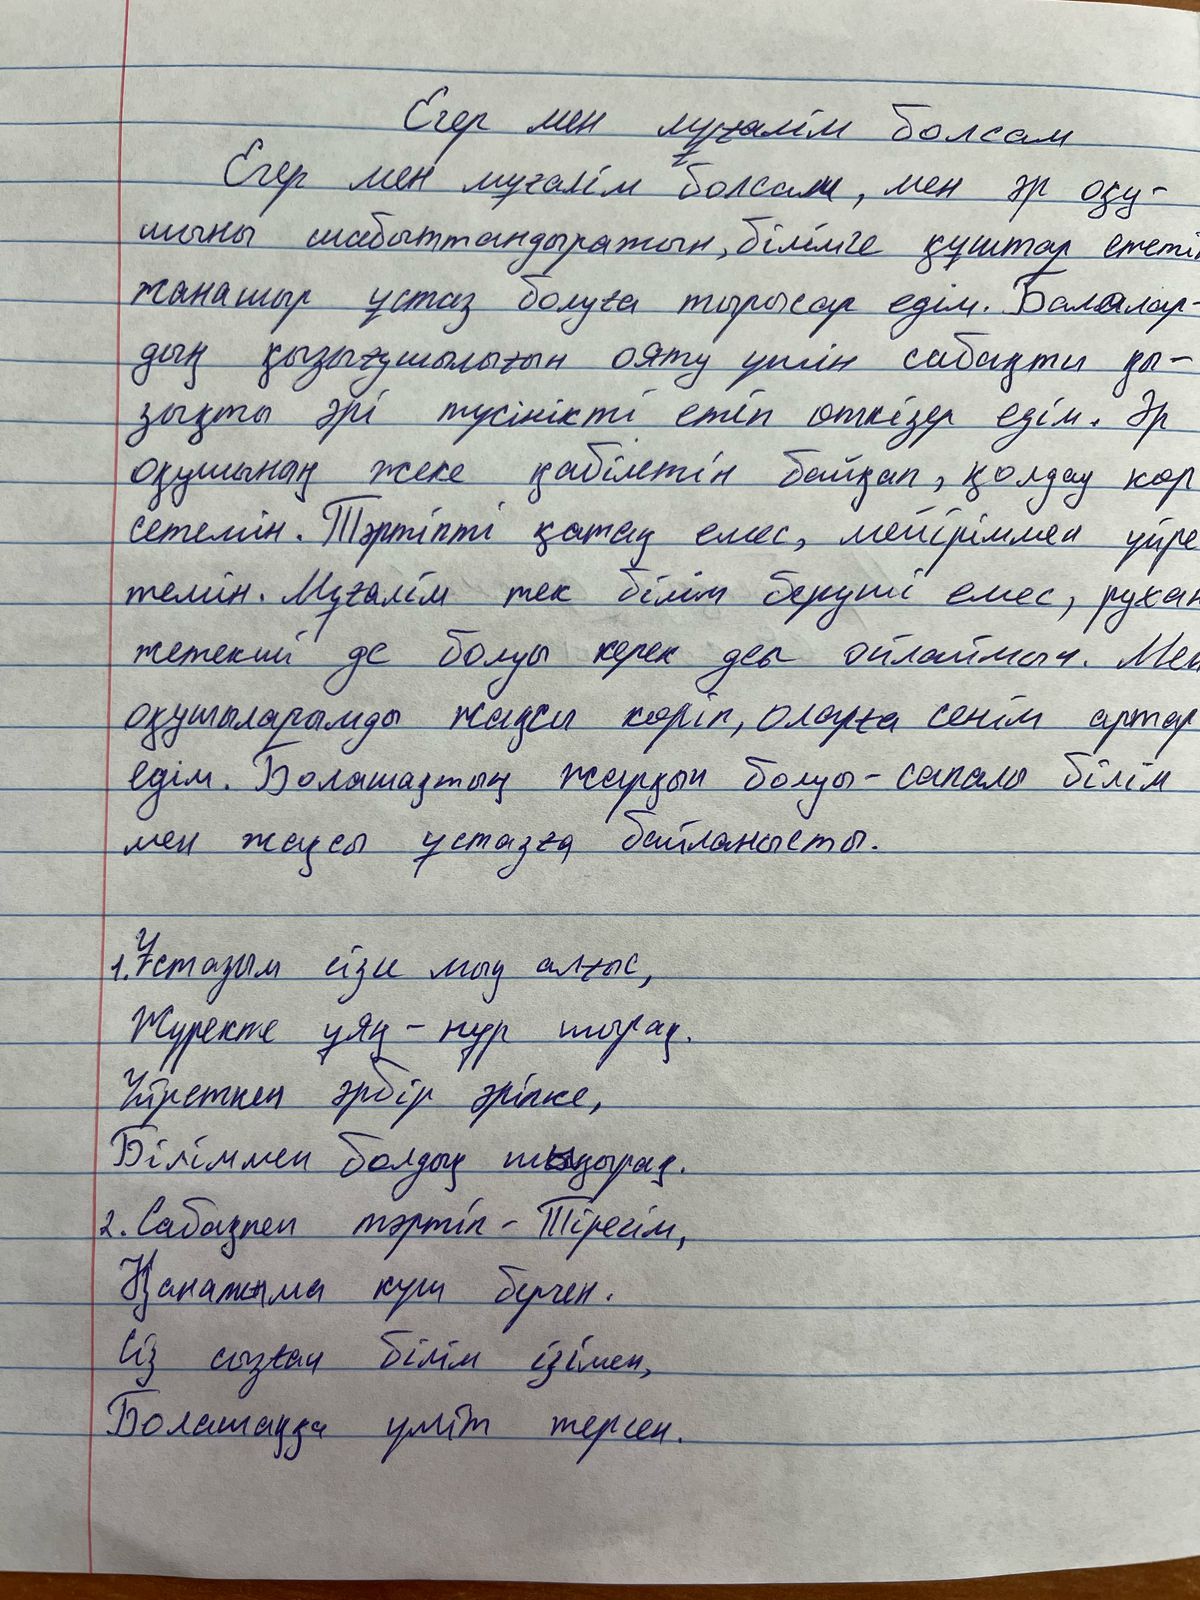 Егер мен мұғалім болсам
Егер мен мұғалім болсам, мен әр оқу-
шыны шабыттандыратын, білімге құштар ететін
жанашыр ұстаз болуға тырысар едім. Балалар-
дың қызығушылығын ояту үшін сабақты қы-
зықты әрі түсінікті етіп өткізер едім. Әр
оқушының жеке қабілетін байқап, қолдау көр
сетемін. Тәртіпті қатаң емес, мейіріммен үйре
темін. Мұғалім тек білім беруші емес, рухан
жетекші де болуы керек деп ойлаймын. Мен
оқушыларымды жақсы көріп, оларға сенім артар
едім. Болашақтың жарқын болуы - сапалы білім
мен жақсы ұстазға байланысты.
1. Ұстазым сізге мың алғыс,
Жүректе ұяң - нұр шырақ.
Үйреткен әрбір әріпке,
Біліммен болдың шыңырақ.
2. Сабақпен тәртіп - Тірегім,
Қанатыма күш берген.
Сіз сызған білім ізімен,
Болашаққа үміт терген.